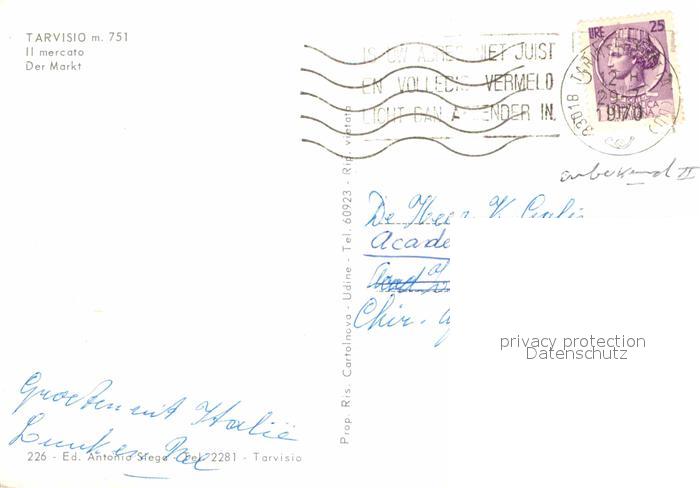 TARVISIO m. 751
Il mercato
Der Markt
IS UW ADRES NIET JUIST
EN VOLLEDIG VERMELD
LICHT DAN AFZENDER IN.
LIRE 25
1970
33018
onbekend II
De Heer V.
Acade
Chir.
privacy protection
Datenschutz
Groeten uit Italië
Prop. Ris. Cartolnova - Udine - Tel. 60923 - Rip. vietata
226 - Ed. Antonio Siega - Tel. 2281 - Tarvisio